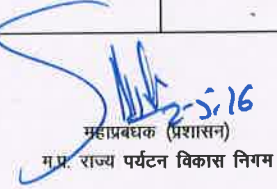 2-5-16
महाप्रबंधक (प्रशासन)
म.प्र. राज्य पर्यटन विकास निगम